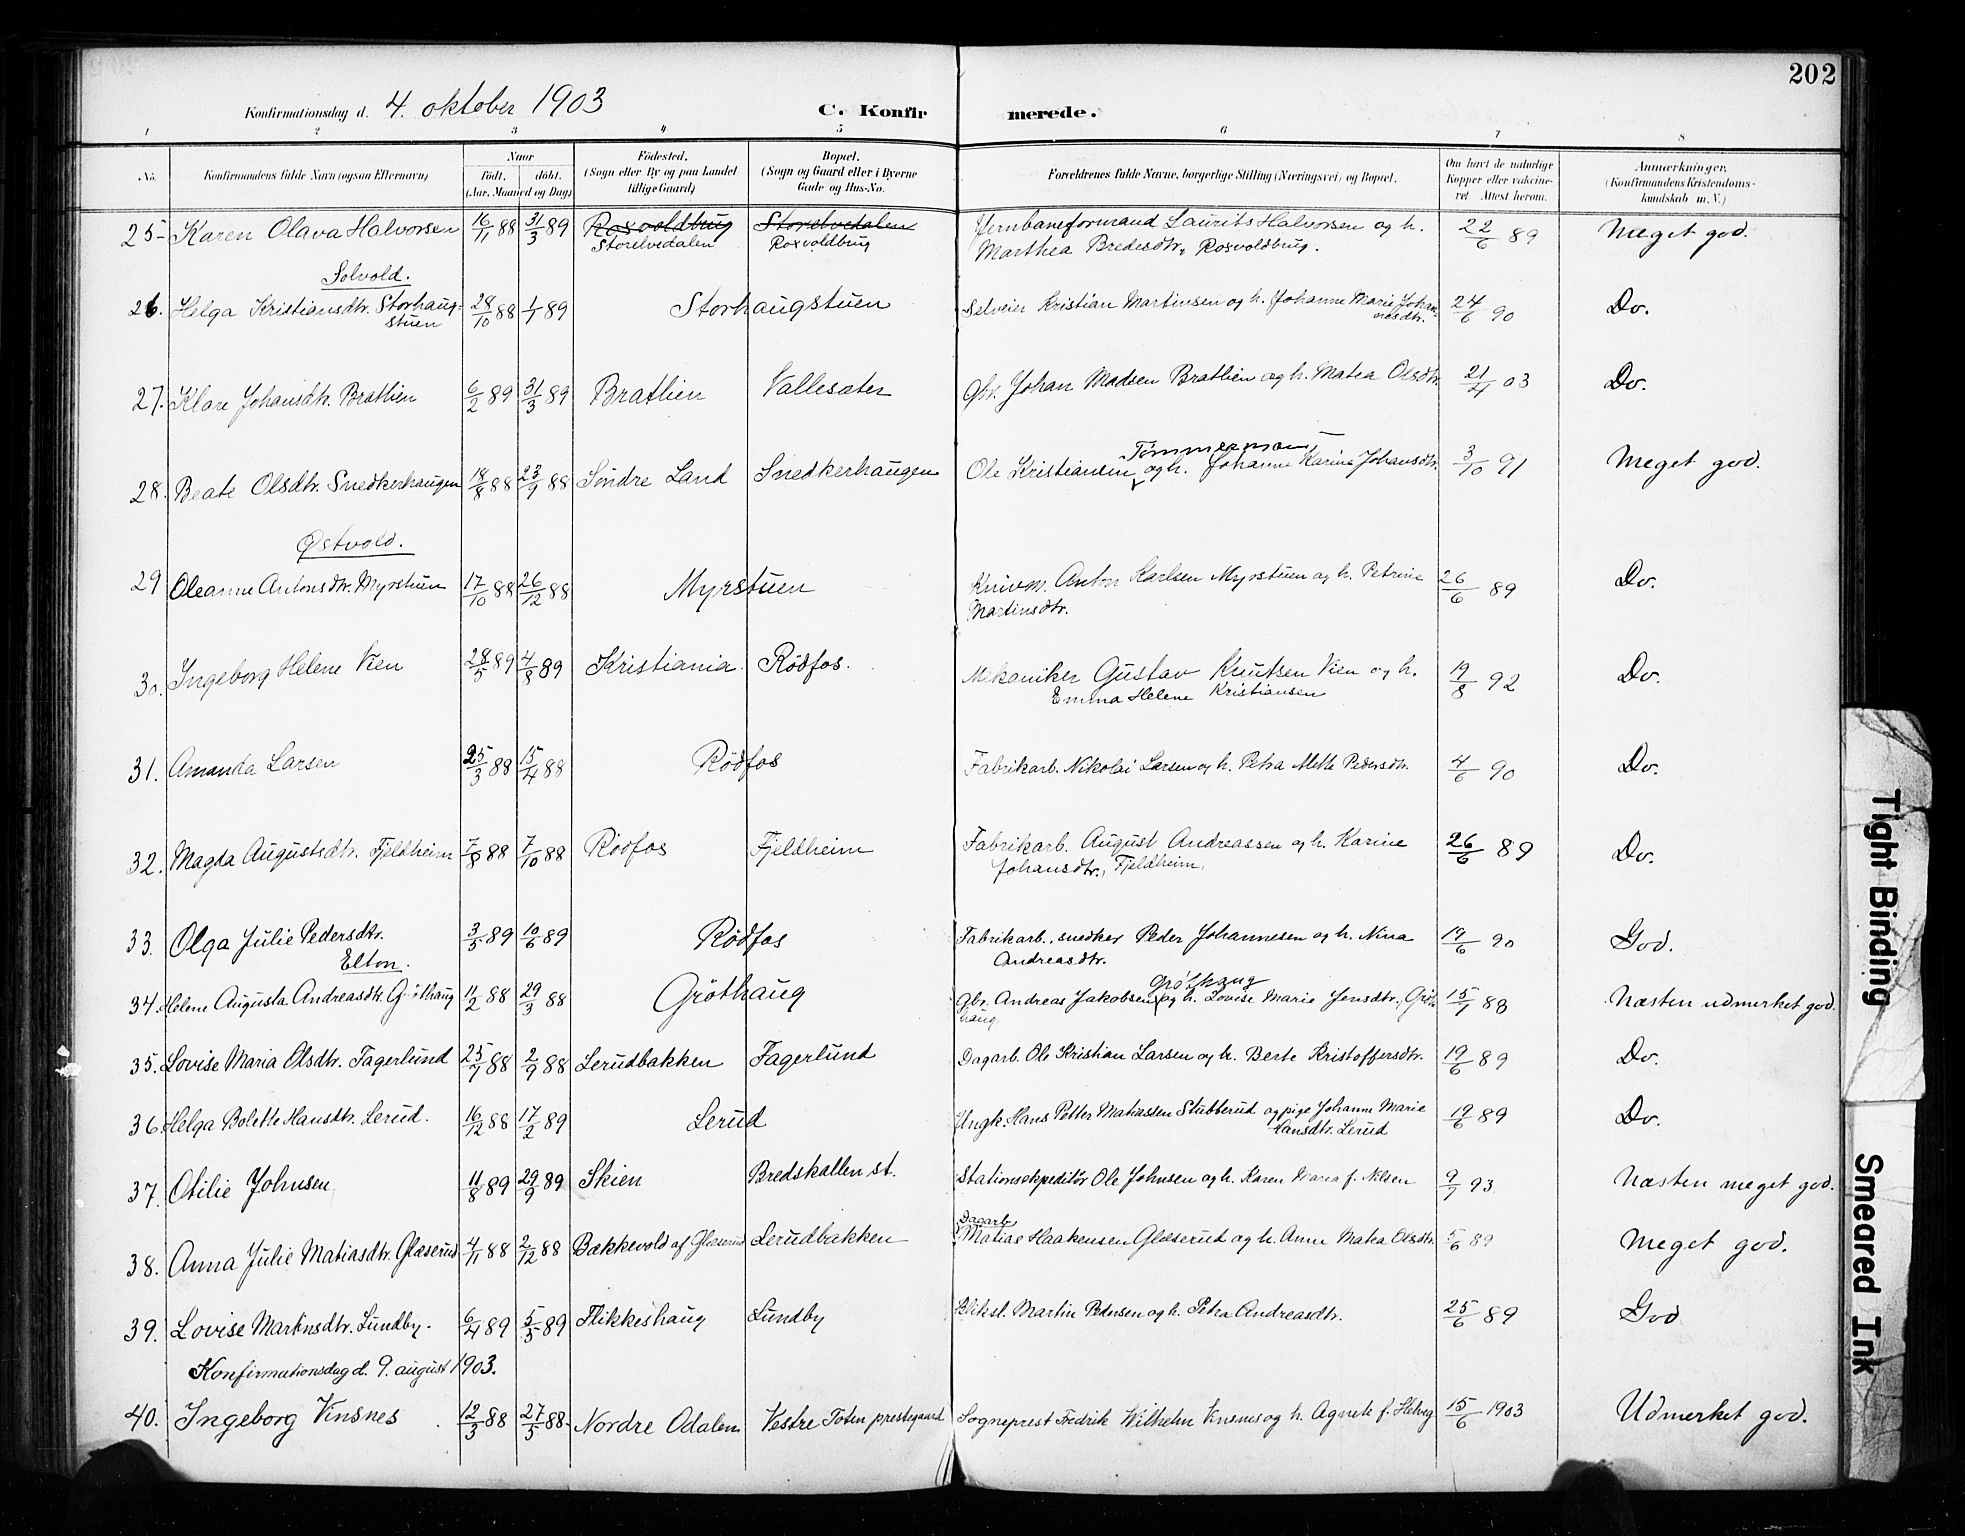 202
Konfirmationsdag d. 4. oktober 1903 C. Konfirmerede.
1 2 3 4 5 6 7 8
No. Konfirmandens fulde Navn (ogsaa Efternavn) Naar født. døbt. (Aar, Maaned og Dag) Fødested. (Sogn eller By og paa Landet tillige Gaard) Bopæl. (Sogn og Gaard eller i Byerne Gade og Hus-No. Forældrenes fulde Navne, borgerlige Stilling (Næringsvei) og Bopæl. Om havt de naturlige Kopper eller vakcineret Attest herom. Anmærkninger. (Konfirmandens Kristendomskundskab m. V.)
25 Karen Olava Halvorsen 16/11 88 31/3 89 Roxvoldbrug Storelvedalen Jernbaneformand Laurits Halvorsen og h. 22/6 89 Meget god.
Storelvedalen Roxvoldbrug Marthea Bredesdtr, Roxvoldbrug.
Solvold.
26. Helga Kristiansdtr. Storhaug- 28/10 88 1/1 89 Storhaugstuen Selveier Kristian Martinsen og h. Johanne Marie Johan- 24/6 90 Do.
stuen nesdtr.
27. Klara Johansdtr. Bratlien 6/2 89 31/3 89 Bratlien Vallesæter Gbr. Johan Madsen Bratlien og h. Matea Olsdtr. 21/4 03 Do.
Tømmermand
28. Beate Olsdtr. Snedkerhaugen 18/8 88 23/9 88 Søndre Land Snedkerhaugen Ole Kristiansen og h. Johanne Karine Johansdtr. 3/10 91 Meget god.
Østvold.
29 Oleanne Antonsdtr. Myrstuen 17/10 88 26/12 88 Myrstuen Knivm. Anton Karlsen Myrstuen og h. Petrine 26/6 89 Do.
Martinsdtr.
30. Ingeborg Helene Vien 28/5 89 4/8 89 Kristiania Rødfos. Mekaniker Gustav Knutsen Vien og h. 19/8 92 Do.
Emma Helene Kristiansen
31. Amanda Larsen 25/3 88 15/4 88 Rødfos Fabrikarb. Nikolai Larsen og h. Petra Mette Pedersdtr. 4/6 90 Do.
32. Magda Augustsdtr. Fjeldheim 7/8 88 7/10 88 Rødfos Fjeldheim Fabrikarb. August Andreassen og h. Karine 26/6 89 Do.
Johansdtr., Fjeldheim.
33. Olga Julie Pedersdtr. 3/5 89 10/6 89 Rødfos Fabrikarb., snedker Peder Johannesen og h. Nina 19/6 90 God.
Elton. Andreasdtr.
Grøthaug
34. Helene Augusta Andreasdtr. Grøthaug 11/2 88 29/3 88 Grøthaug Gbr. Andreas Jakobsen og h. Lovise Marie Jensdtr., Grøt- 15/7 88 Næsten udmerket god.
haug
35. Lovise Maria Olsdtr. Fagerlund 25/7 88 2/9 88 Lerudbakken Fagerlund Dagarb. Ole Kristian Larsen og h. Berte Kristoffersdtr. 19/6 89 Do.
36. Helga Bolette Hansdtr. Lerud. 16/12 88 17/2 89 Lerud Ungk. Hans Petter Matiassen Stubberud og pige Johanne Marie 19/6 89 Do.
Hansdtr. Lerud
37. Otilie Johnsen 11/8 89 29/9 89 Skien Bredskallen st. Stationsekspeditør Ole Johnsen og h. Karen Maria f. Nilsen 9/7 93 Næsten meget god.
Dagarb
38. Anna Julie Matiasdtr. Glæserud 4/11 88 2/12 88 Bækkevold af Glæserud Lerudbakken Matias Haakensen Glæserud og h. Anne Matea Olsdtr. 5/6 89 Meget god.
39. Lovise Martinsdtr. Lundby. 6/4 89 5/5 89 Flikkeshaug Lundby Bliksl. Martin Pedersen og h. Petra Andreasdtr. 25/6 89 God
Konfirmationsdag d. 9. august 1903.
40. Ingeborg Vinsnes 12/3 88 27/5 88 Nordre Odalen Vestre Toten prestegaard Sogneprest Fredrik Wilhelm Vinsnes og h. Agnete f. Helweg 15/6 1903 Udmerket god.
Tight Binding
Smeared Ink